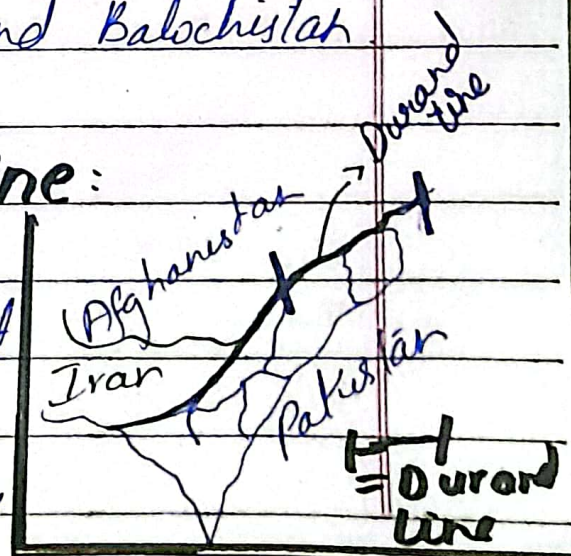 nd Balochistan
Durand
line
ne:
Afghanistan
Iran
Pakistan
= Durand
Line